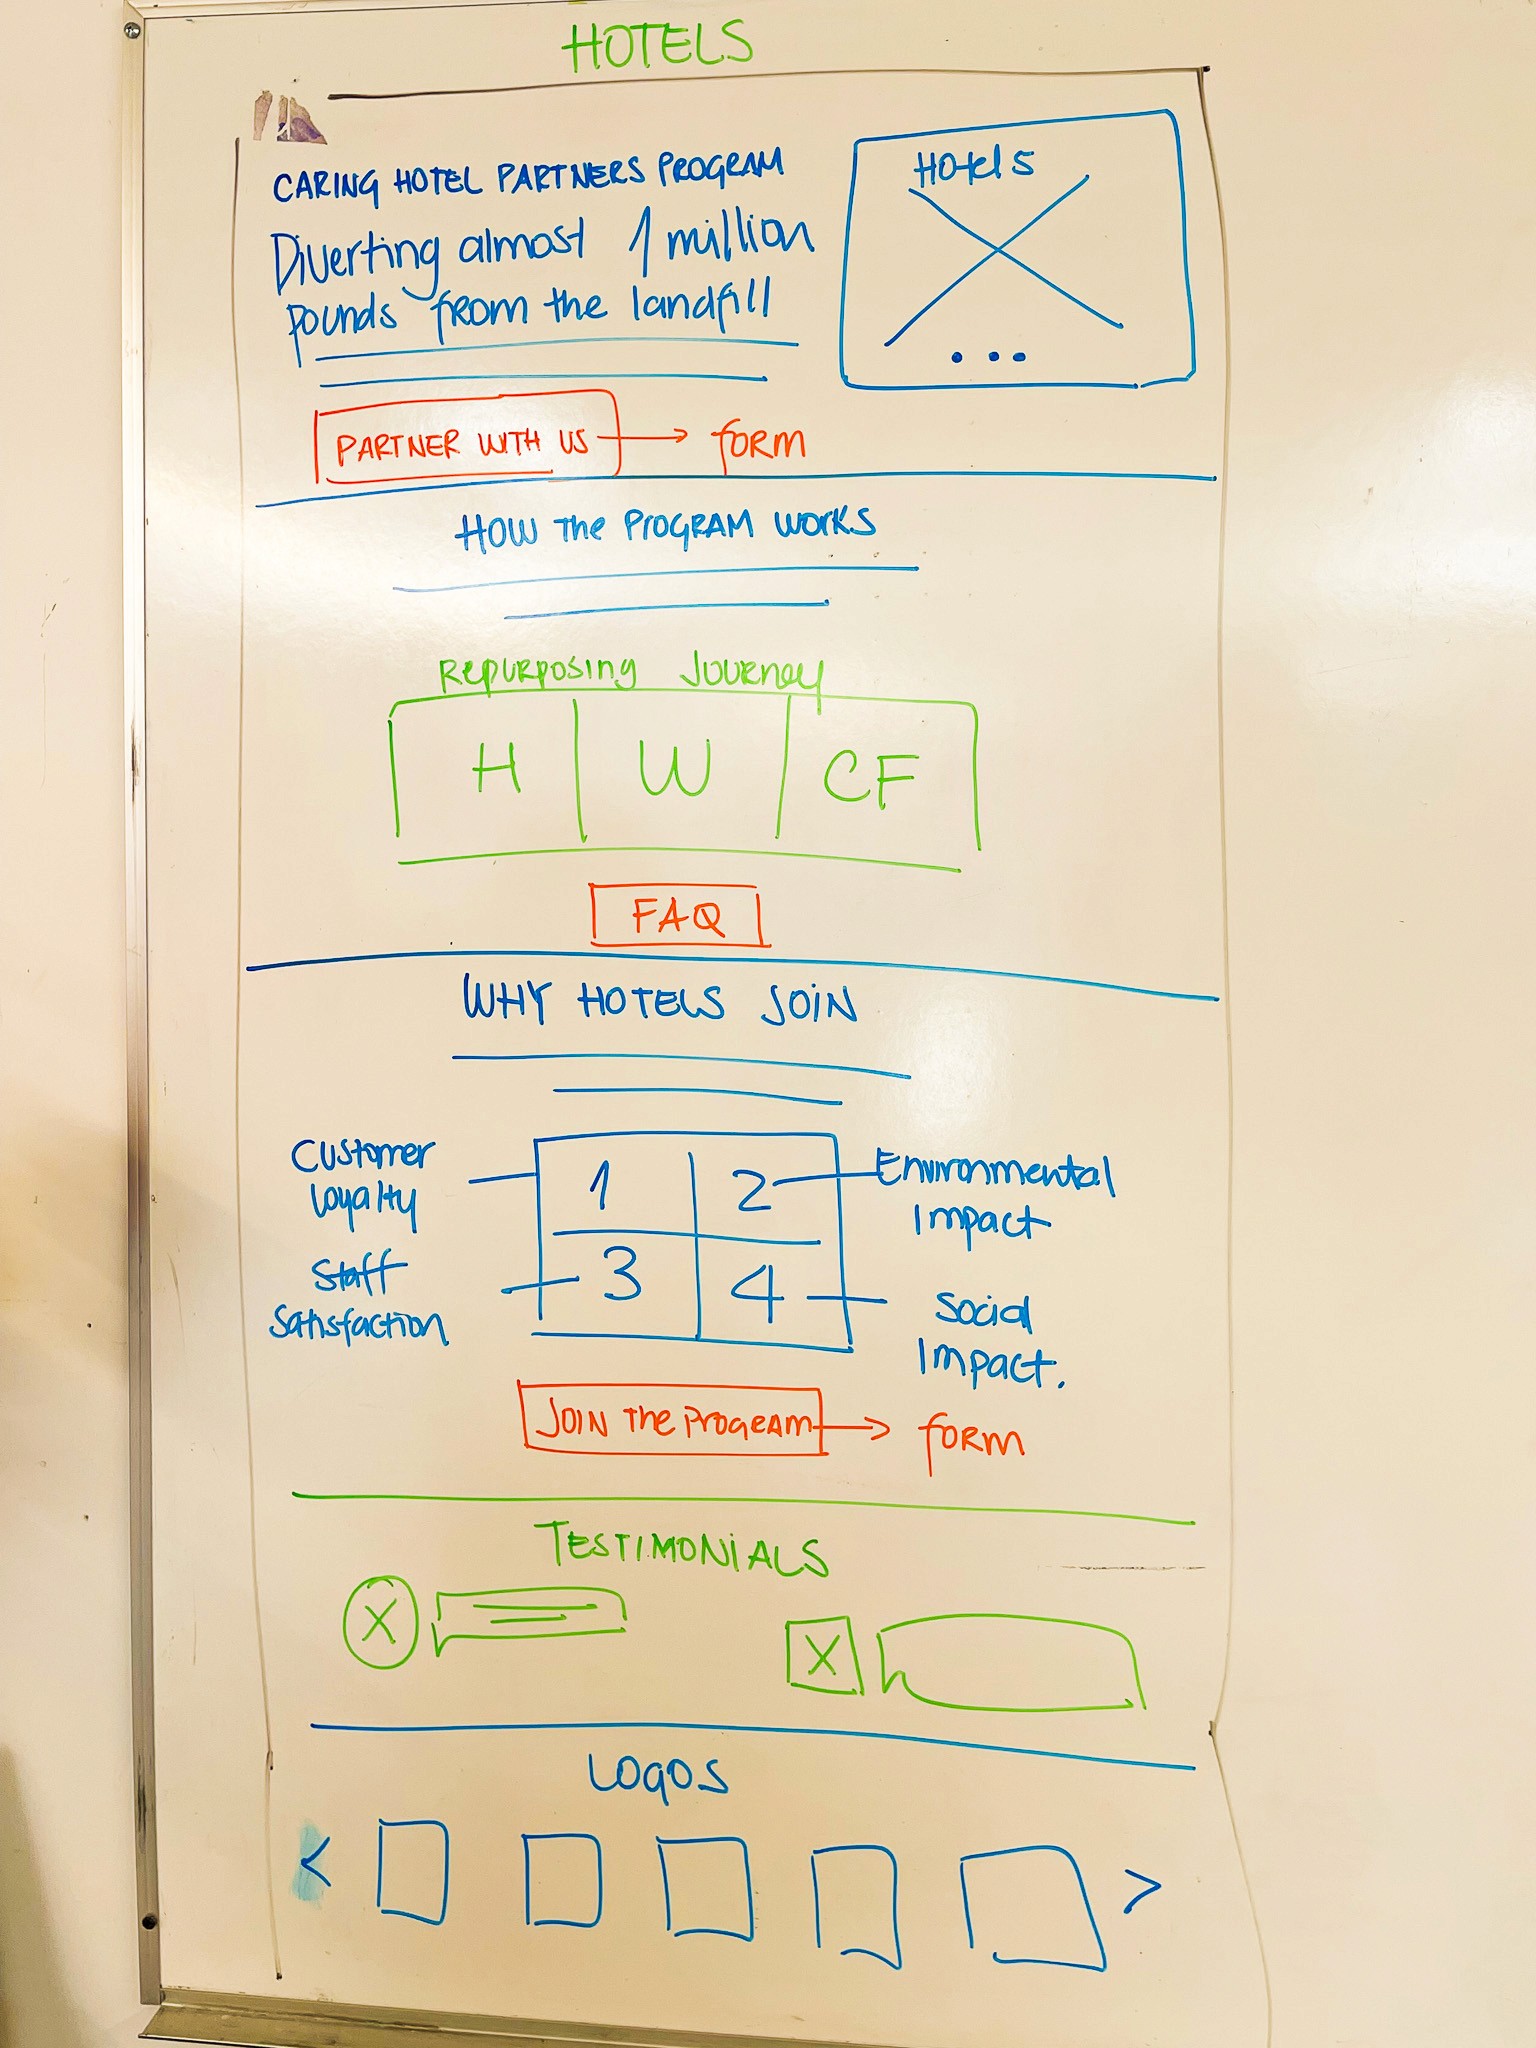 HOTELS
CARING HOTEL PARTNERS PROGRAM
Diverting almost 1 million
pounds from the landfill
Hotels
PARTNER WITH US → form
HOW the PROGRAM WORKS
Repurposing Journey
H W CF
FAQ
WHY HOTELS JOIN
Customer
loyalty
1 2
Environmental
Impact
Staff
Satisfaction
3 4
Social
Impact.
JOIN the Program → form
TESTIMONIALS
X X
LOGOS
< >